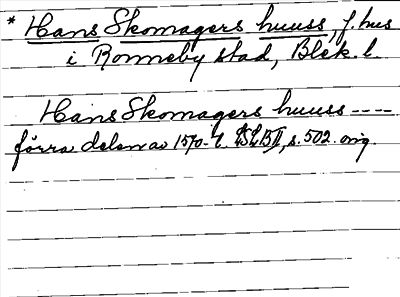 * Hans Skomagers huuss, f. hus
i Ronneby stad, Blek. l.
Hans Skomagers huuss ----
förra delen av 1570-t. s. 502. orig.